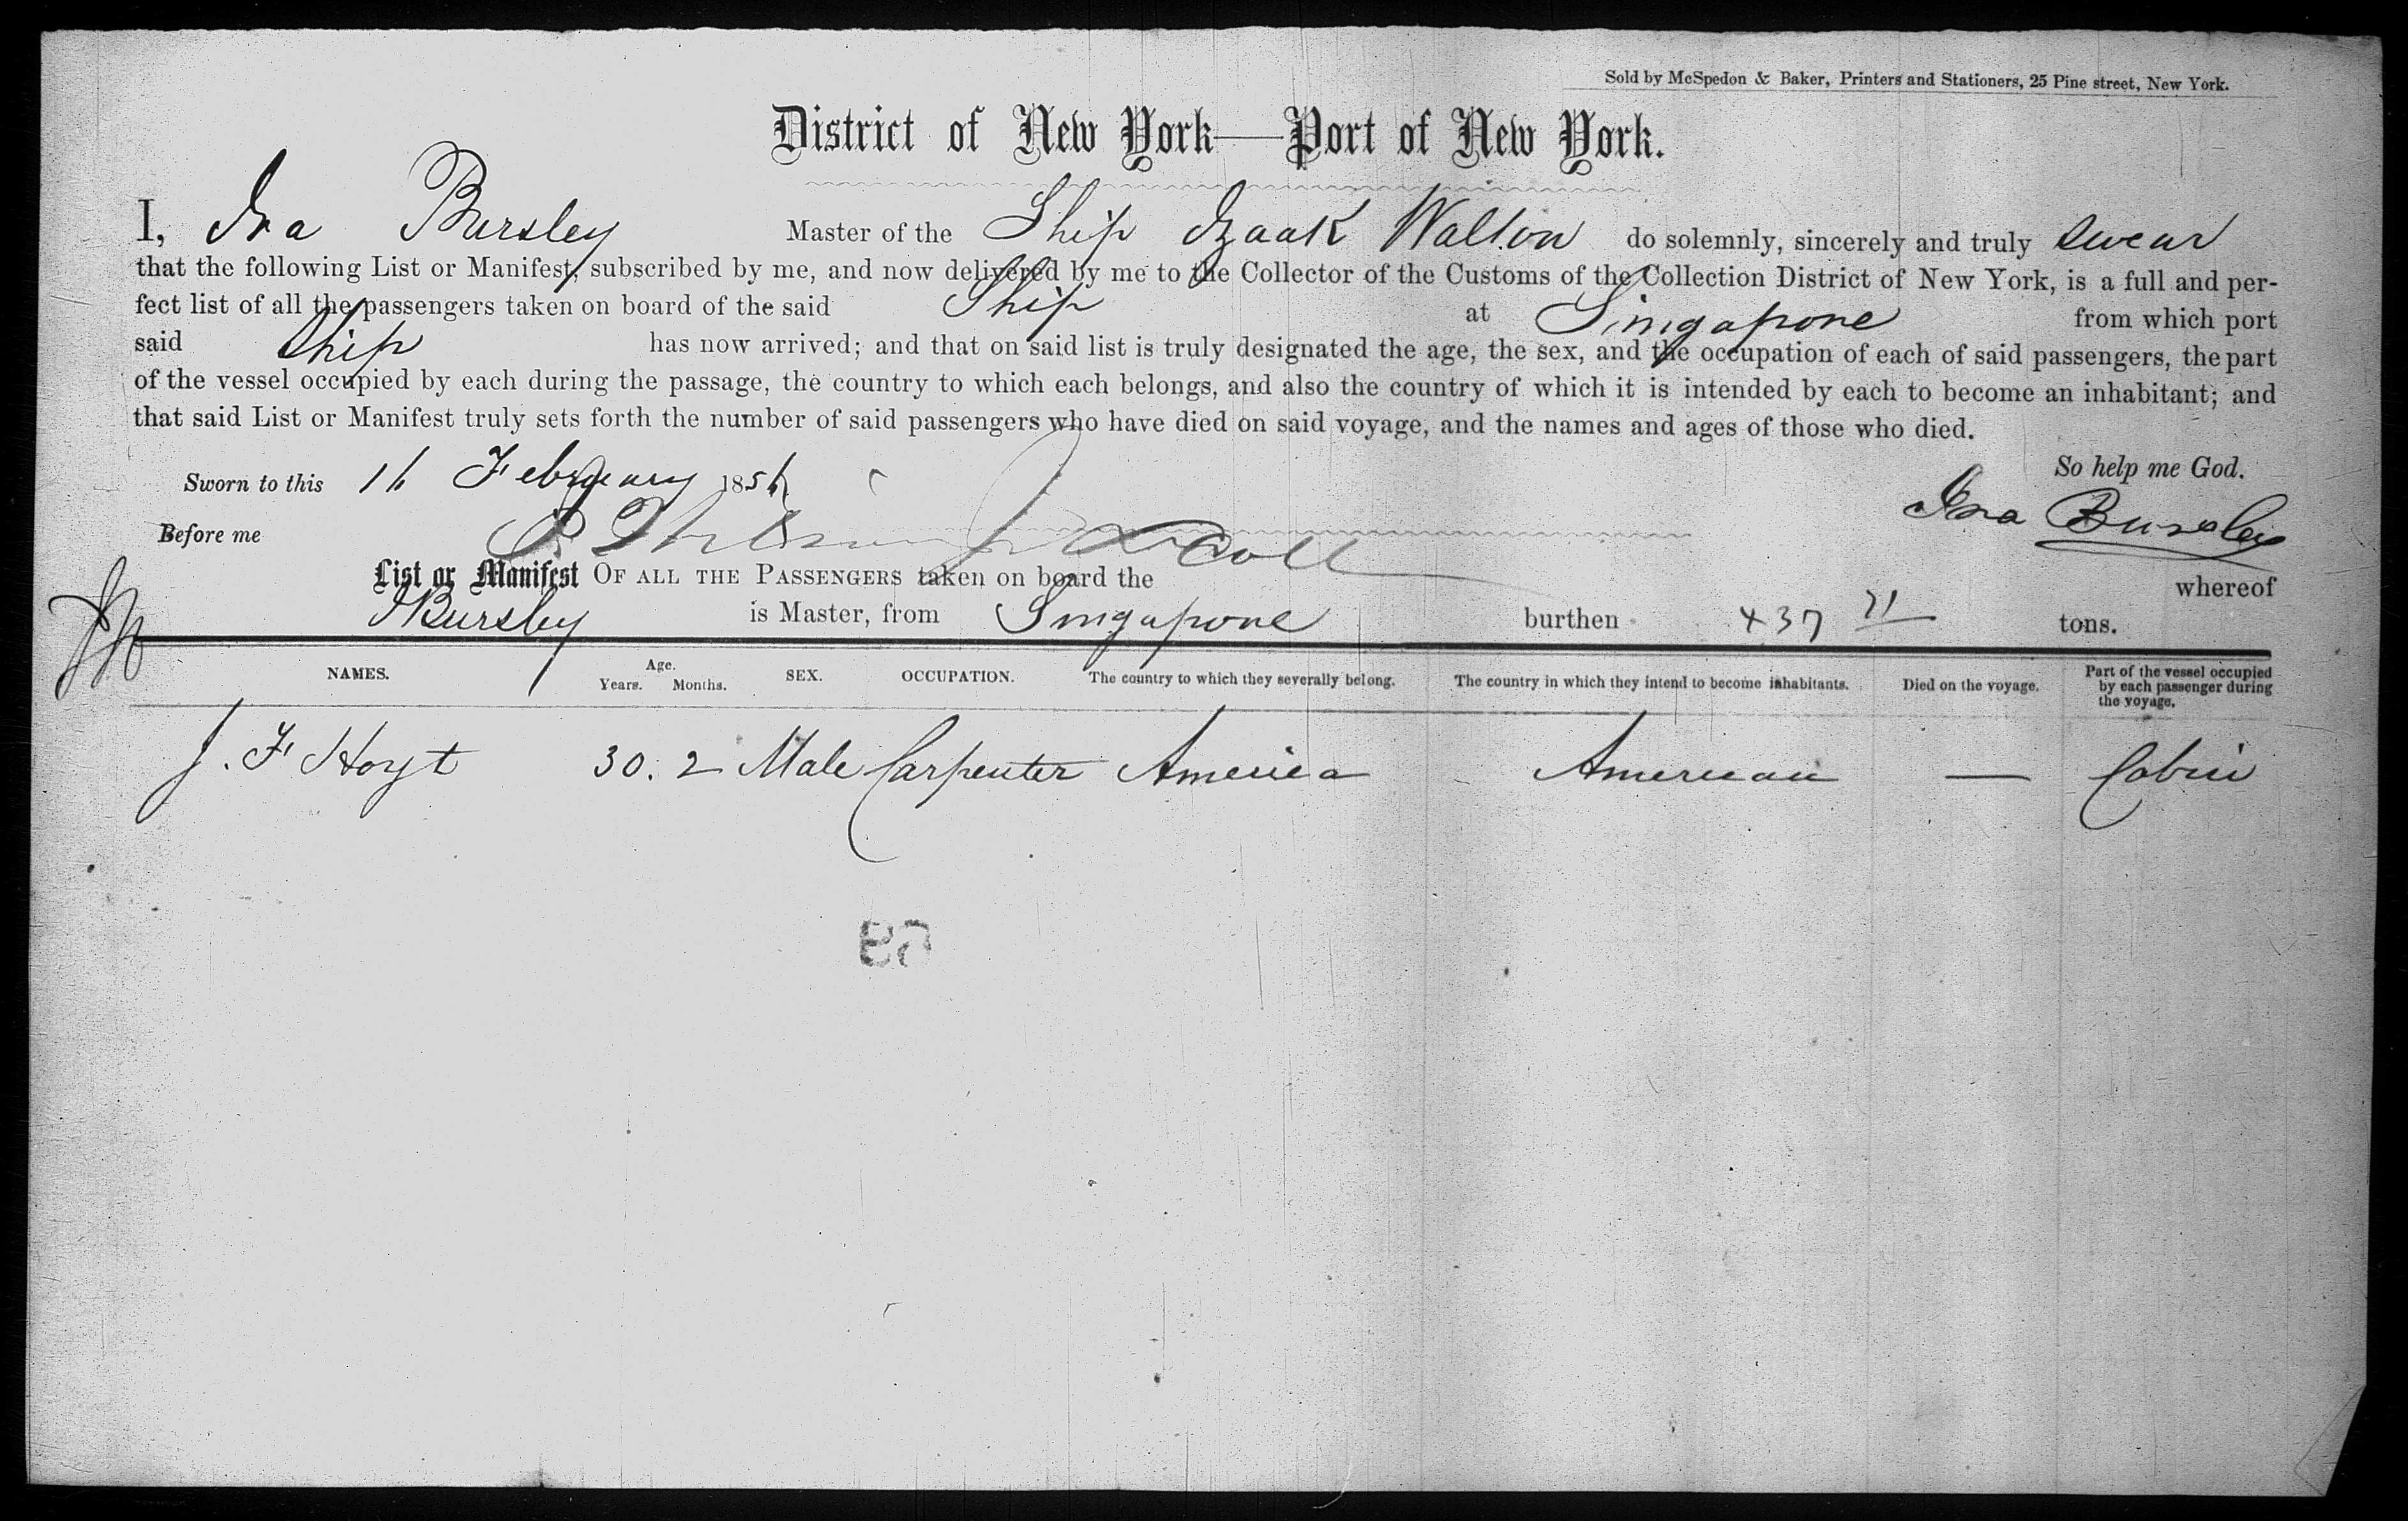 Sold by McSpedon & Baker, Printers and Stationers, 25 Pine street, New York.
District of New York—Port of New York.
I, Ira Bursley Master of the Ship Izaak Walton do solemnly, sincerely and truly swear
that the following List or Manifest, subscribed by me, and now delivered by me to the Collector of the Customs of the Collection District of New York, is a full and per-
fect list of all the passengers taken on board of the said Ship at Singapore from which port
said Ship has now arrived; and that on said list is truly designated the age, the sex, and the occupation of each of said passengers, the part
of the vessel occupied by each during the passage, the country to which each belongs, and also the country of which it is intended by each to become an inhabitant; and
that said List or Manifest truly sets forth the number of said passengers who have died on said voyage, and the names and ages of those who died.
So help me God.
Sworn to this 16 February 1856
Ira Bursley
Before me Coll
List or Manifest OF ALL THE PASSENGERS taken on board the whereof
I Bursley is Master, from Singapore burthen 437 71 tons.
NAMES. Age. Years. Months. SEX. OCCUPATION. The country to which they severally belong. The country in which they intend to become inhabitants. Died on the voyage. Part of the vessel occupied by each passenger during the voyage.
J. F Hoyt 30. 2 Male Carpenter America American — Cabin
69